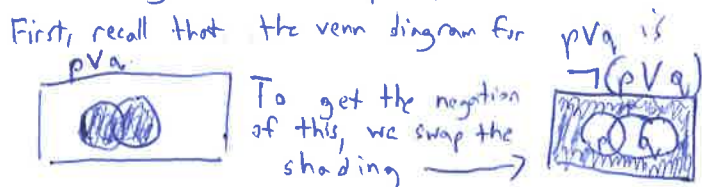 First, recall that the venn diagram for pVq is
pVq
¬(pVq)
To get the negation
of this, we swap the
shading →
p q